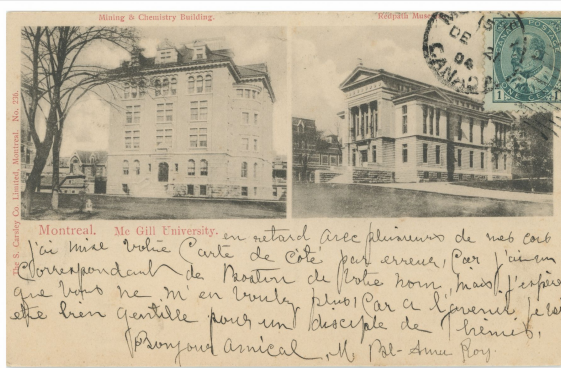 Mining & Chemistry Building.
Redpath Museum
MONTREAL
15
DE
04
CANADA
1
The S. Carsley Co. Limited, Montreal. No. 238.
Montreal. Mc Gill University.
en retard avec plusieurs de mes
J'ai mise votre Carte de côté par erreur, Car j'ai un
Correspondant de Boston de votre nom, mais j'espère
que vous ne m'en voulez plus, Car a l'avenir, je
etre bien gentille pour un disciple de Thémis.
Bonjour amical, M Roy.